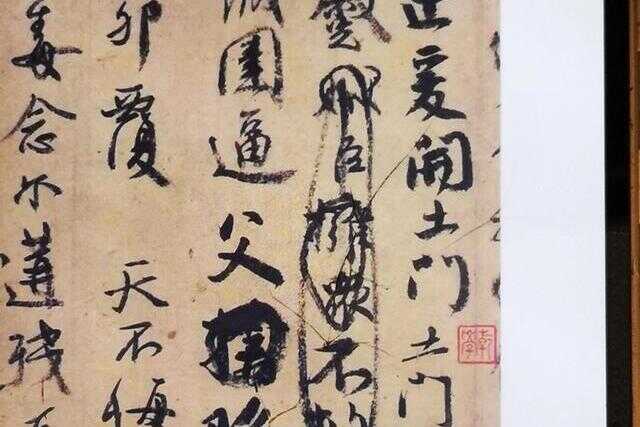 爰開土門土門
蹙賊臣擁衆不救
城圍逼父
卵覆天不悔
毒念尔遘殘